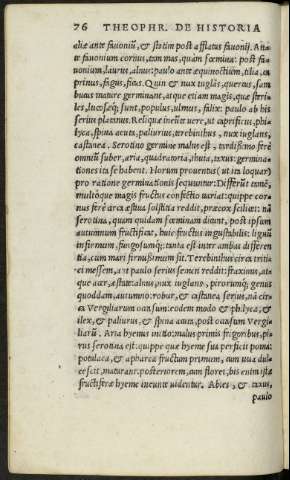 76 THEOPHR. DE HISTORIA
aliæ ante fauoniũ, & statim post afflatus fauonij. An-
te fauonium cornus, tum mas, quàm fœmina: post fa-
uonium, laurus, alnus: paulo ante æquinoctium, tilia, æ-
prinus, fagus, ficus. Quin & nux iuglãs, quercus, sam
bucus mature germinant, atque etiam magis, quæ steri-
les, lucosæq́; sunt, populus, ulmus, salix: paulo ab his
serius platanus. Reliquæ ineũte uere, ut caprificus, phi-
lyca, spina acuta, paliurus, terebinthus, nux iuglans,
castanea. Serotino germine malus est, tardissimo ferè
omniũ suber, aria, quadratoria, thuia, taxus: germina-
tiones ita se habent. Horum prouentus (ut ita loquar)
pro ratione germinationis sequuntur. Differũt tamẽ,
multóque magis fructus confectio uariat: quippe cor-
nus ferè circa æstiua solstitia reddit, præcox scilicet: nã
serotina, quam quidam fœminam dicunt, post ipsum
autumnum fructificat, huic fructus ingustabilis: lignũ
infirmum, fungosumq́;: tanta est inter ambas differen
tia, cum mari firmißimum sit. Terebinthus circa tritici
ei messem, aut paulo serius semen reddit: fraxinus, at-
que acer, æstate: alnus, nux iuglans, pirorumq́; genus
quoddam, autumno: robur, & castanea serius, nã cir-
ca Vergiliarum occasum: eodem modo & philyca, &
ilex, & paliurus, & spina acuta, post occasum Vergi-
liarũ. Aria hyemis initio: malus primis frigoribus, pi-
rus serotina est: quippe quæ hyeme sua perficit poma:
& apharca fructum primum, cum uua dul-
cescit, maturant: posteriorem, cum floret, his enim ista
fructifera hyeme ineunte uidentur. Abies, & taxus,
paulo